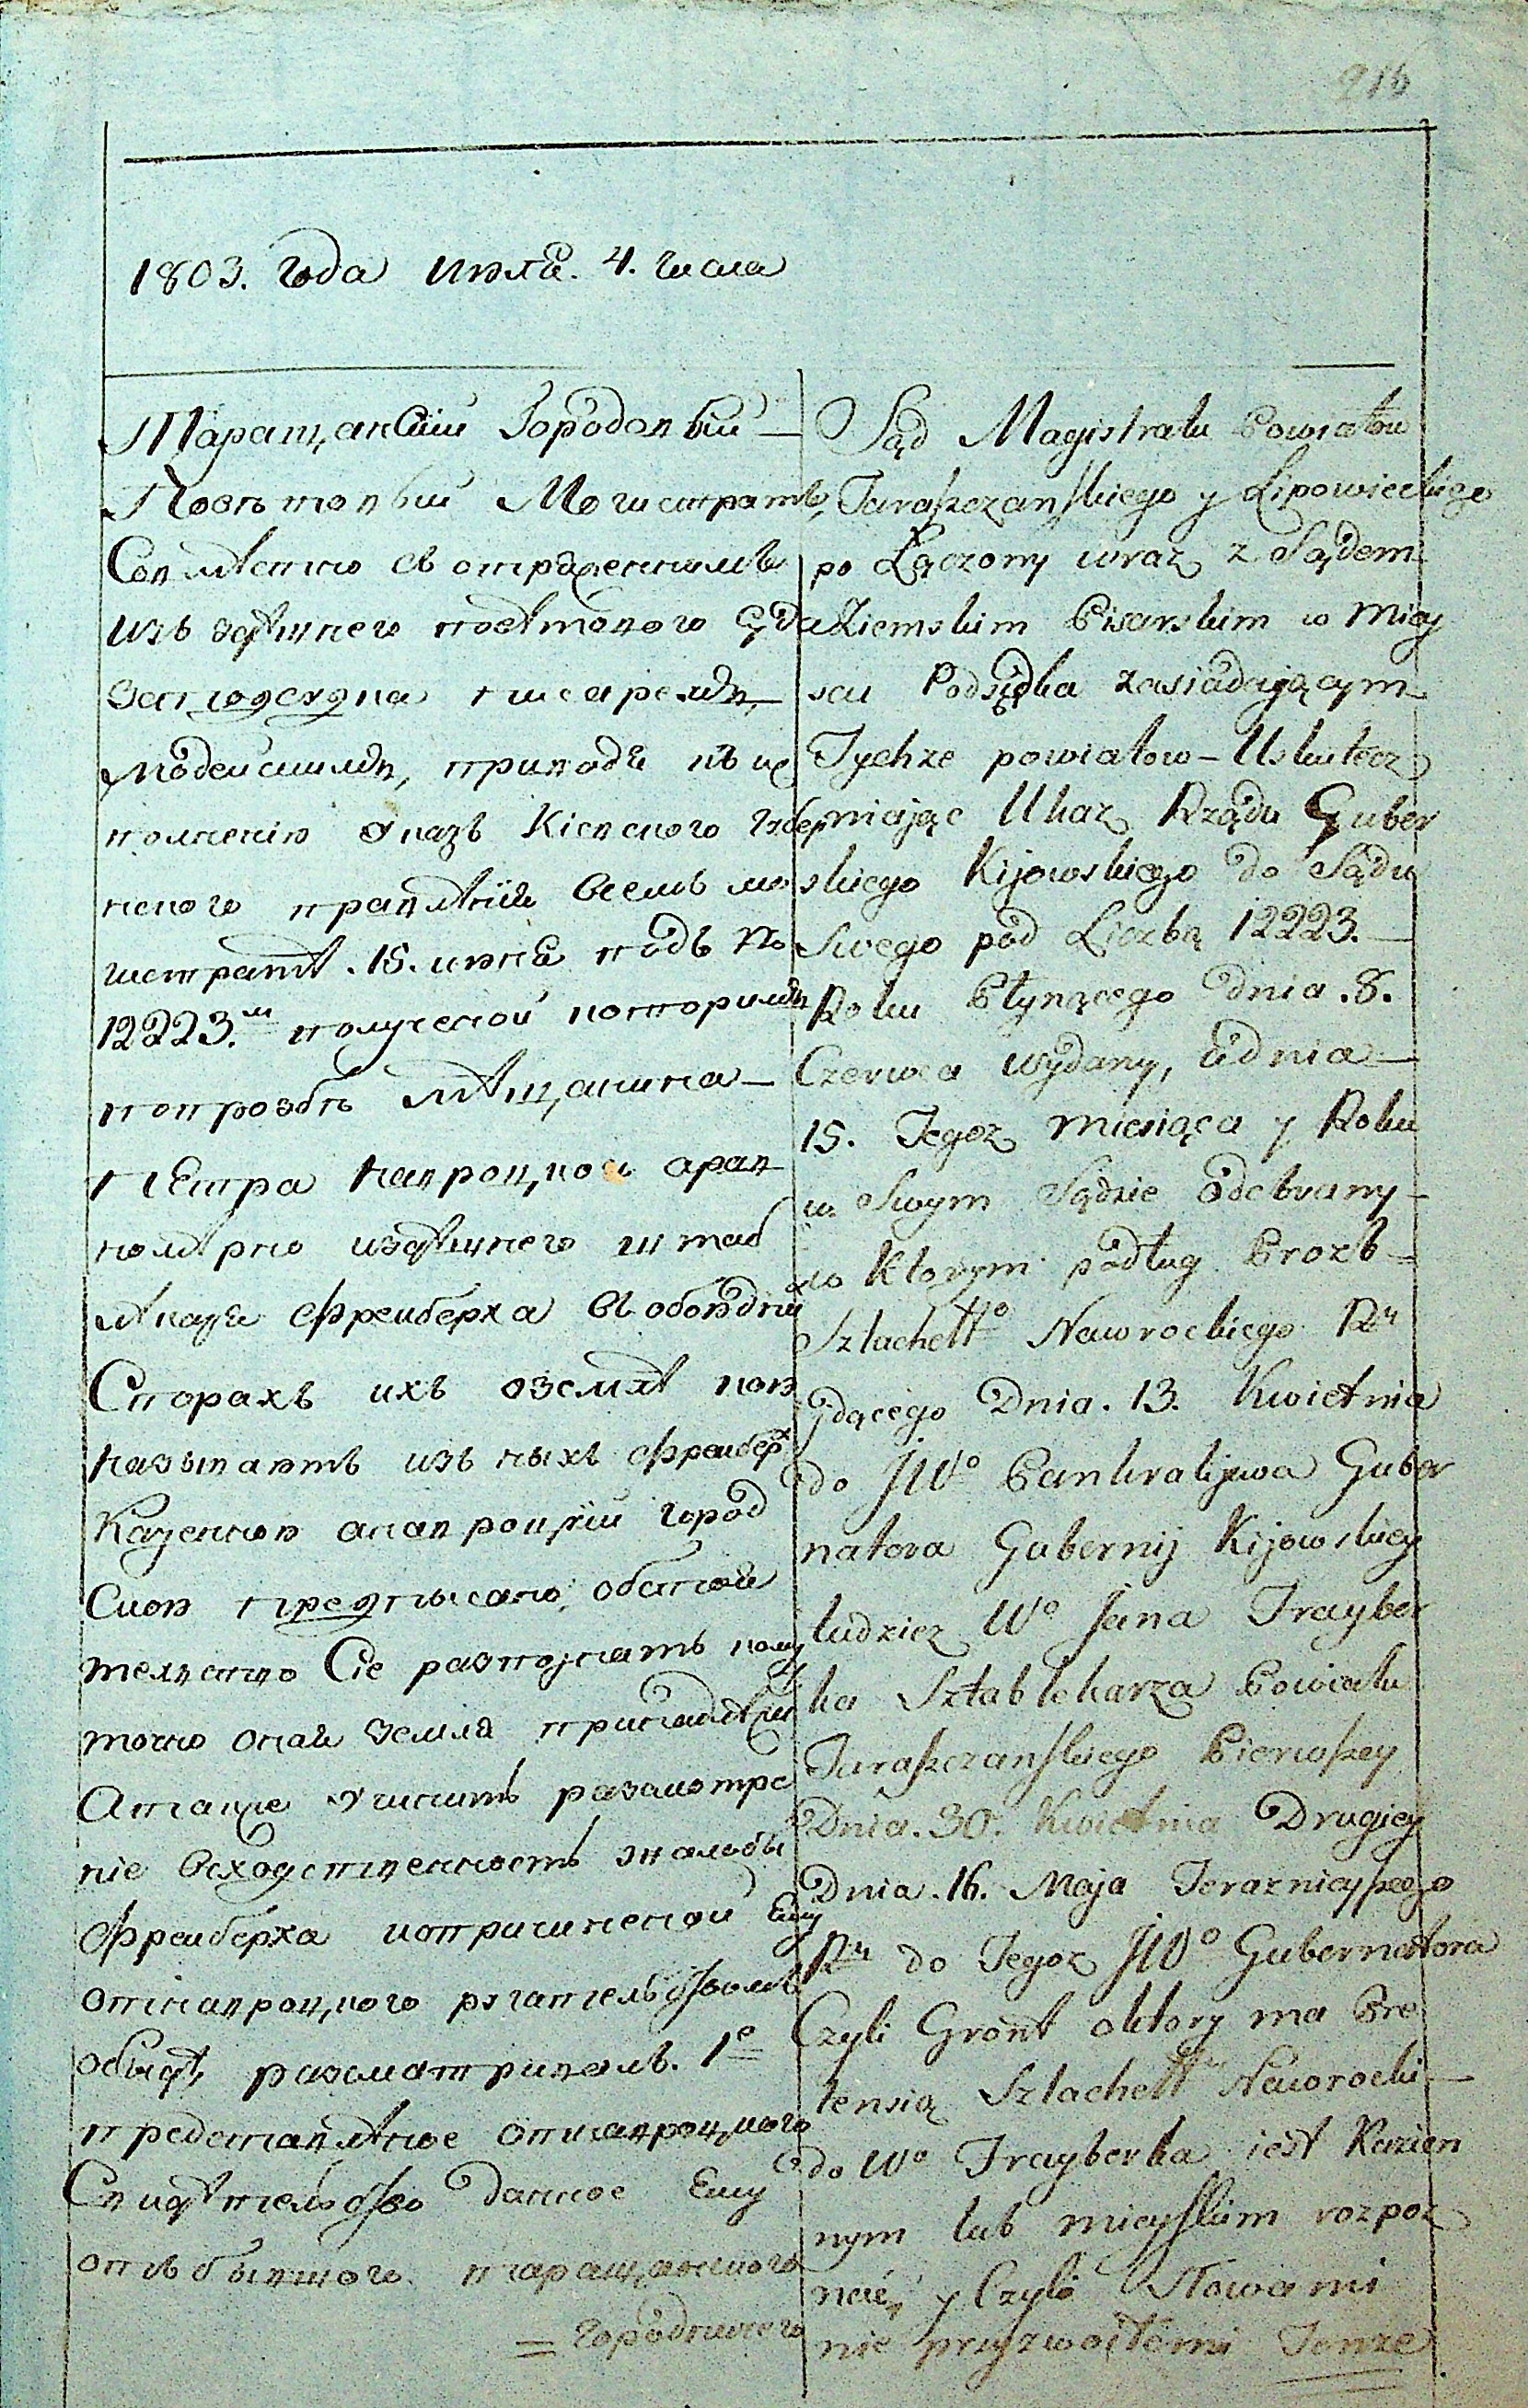 216
1803. года июля. 4. числа
Таращанскїй Городовый
Повѣтовый Магистратъ,
Совмѣстно съ отряженнымъ
изъ здѣшнего повѣтового Суда
засподсудка писаремъ,
приводя въ ис
полненїю Указъ Кіевского Губер
нского правленїя всемъ ма
гистратѣ. 15. июня подъ №
12223.м полученой которимъ
попрозбѣ мѣщанина
Петра Навроцкого
здѣшнего штаб
лѣкаря Фрейберха въ обоюдных
Спорахъ ихъ оземлѣ кою
называютъ изъ ныхъ Фрейберх
Казенною анавроцкїй город
Скою предписано, обстоя
телвство Сіе разпознать кому
точно оная земля принадлѣжит
Атакже учинить разсмотре
ніе жалобы
Фрейберха ипричиненой Ему
отнавроцкого ругателством
обидѣ, разсматривалъ. 1е
представлѣное отнавроцкого
Свидѣтелство данное Ему
отъ бывшого таращанского
= городничего
Sąd Magistratu Powiatow
Taraszczanskiego y Lipowieckiego
po Łączony wraz z Sądem
Ziemskim Pisarskim w miey
scu Podsędka zasiadaiącym
Tychze powiatow – Uskutecz
niając Ukaz Rządu Guber
skiego Kijowskiego do Sądu
Swego pod Liczbą 12223.
Roku Płynącego dnia .8.
Czerwca wydany, a dnia
15. Tegoz miesiąca y Roku
w Swym Sądzie odebrany
w Ktorym podług Prozb
Szlachettо Nawrockiego Ru
Idącego Dnia. 13. Kwietnia
do JWo Pankratijewa Guber
natora Gubernij Kijowskiey
tudziez Wo Jana Frayber
ka Sztablekarza Powiatu
Taraszczanskiego Pierwszey
Dnia. 30. Kwietnia Drugiey
Dnia. 16. Maja Teraznieyszego
Ru do Tegoz JWo Gubernatora
Czyli Gront oktory ma Pre
tensią Szlachett Nawrocki
do Wo Frayberka iest Kazien
nym lub mieyskim rozpoz
nać, y Czyli Słowami
nie przyzwoitemi Tenze